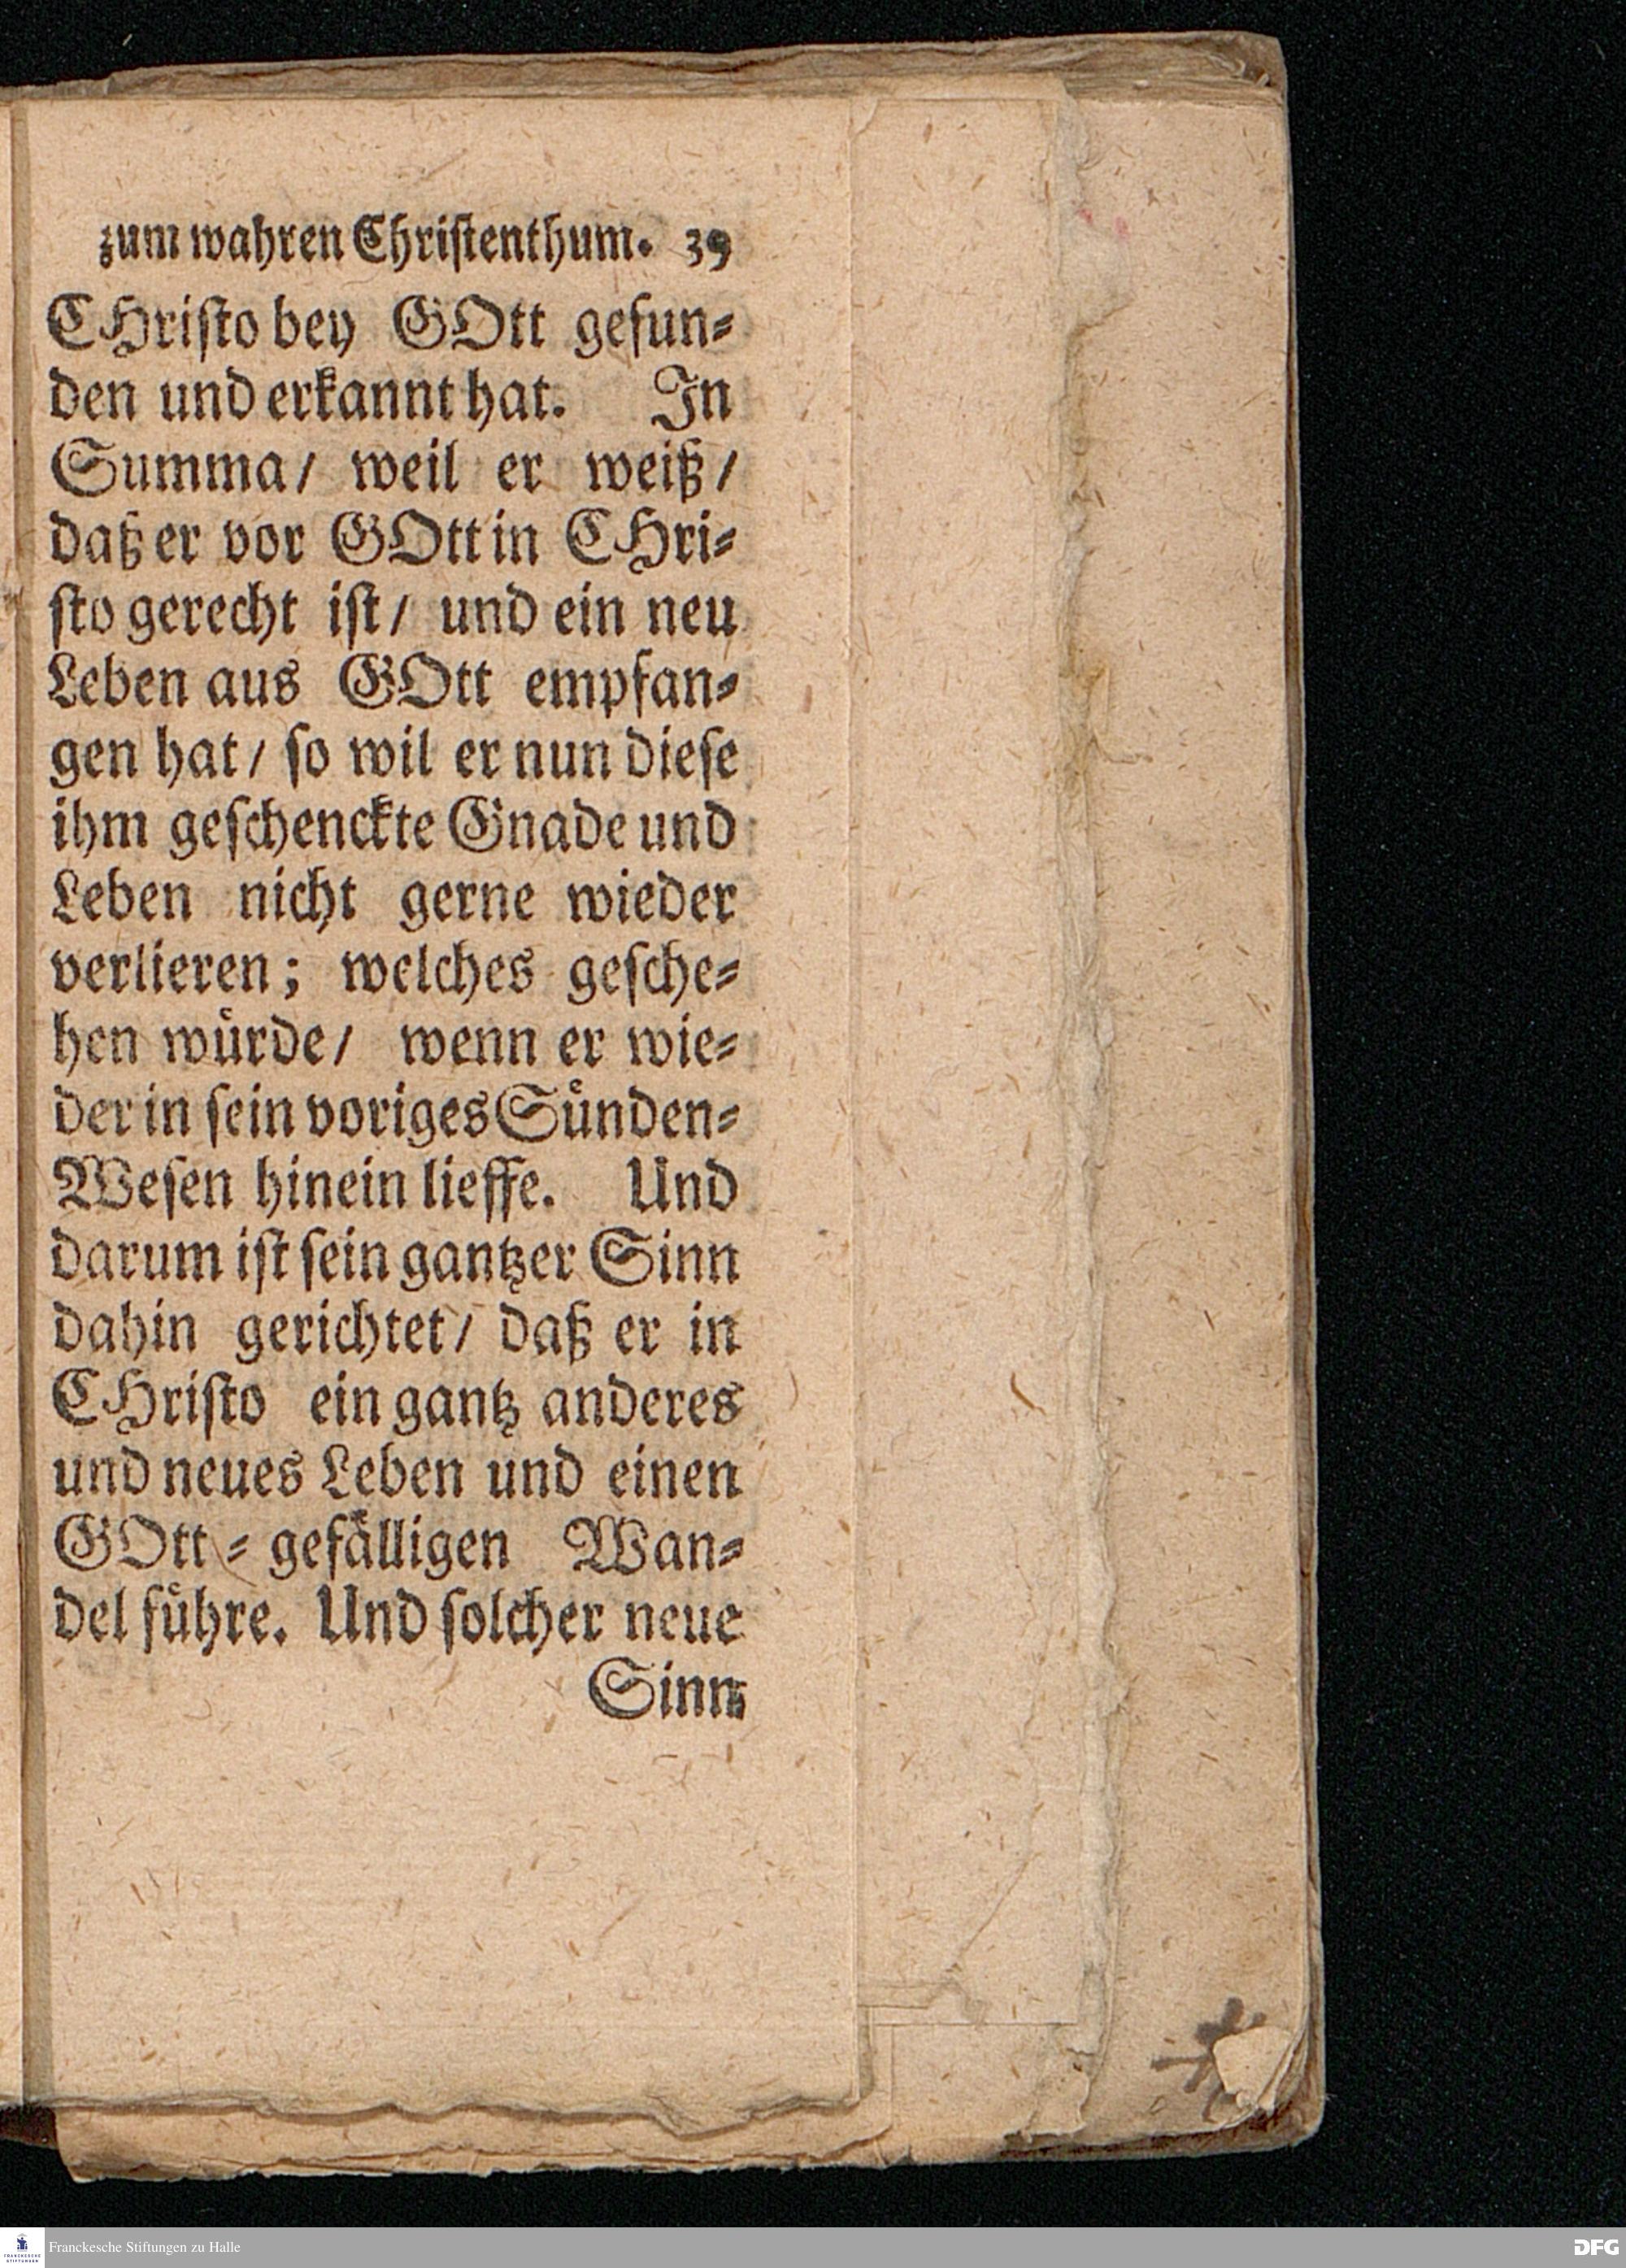 zum wahren Chriſtenthum. 39
CHriſto bey GOtt gefun⸗
den und erkannt hat. In
Summa/ weil er weiß/
daß er vor GOtt in CHri⸗
ſto gerecht iſt/ und ein neu
Leben aus GOtt empfan⸗
gen hat/ ſo wil er nun dieſe
ihm geſchenckte Gnade und
Leben nicht gerne wieder
verlieren; welches geſche⸗
hen wuͤrde/ wenn er wie⸗
der in ſein voriges Suͤnden⸗
Weſen hinein lieffe. Und
darum iſt ſein gantzer Sinn
dahin gerichtet/ daß er in
CHriſto ein gantz anderes
und neues Leben und einen
GOtt⸗gefaͤlligen Wan⸗
del fuͤhre. Und ſolcher neue
Sinn
FRANCKESCHE STIFTUNGEN
Franckesche Stiftungen zu Halle
DFG